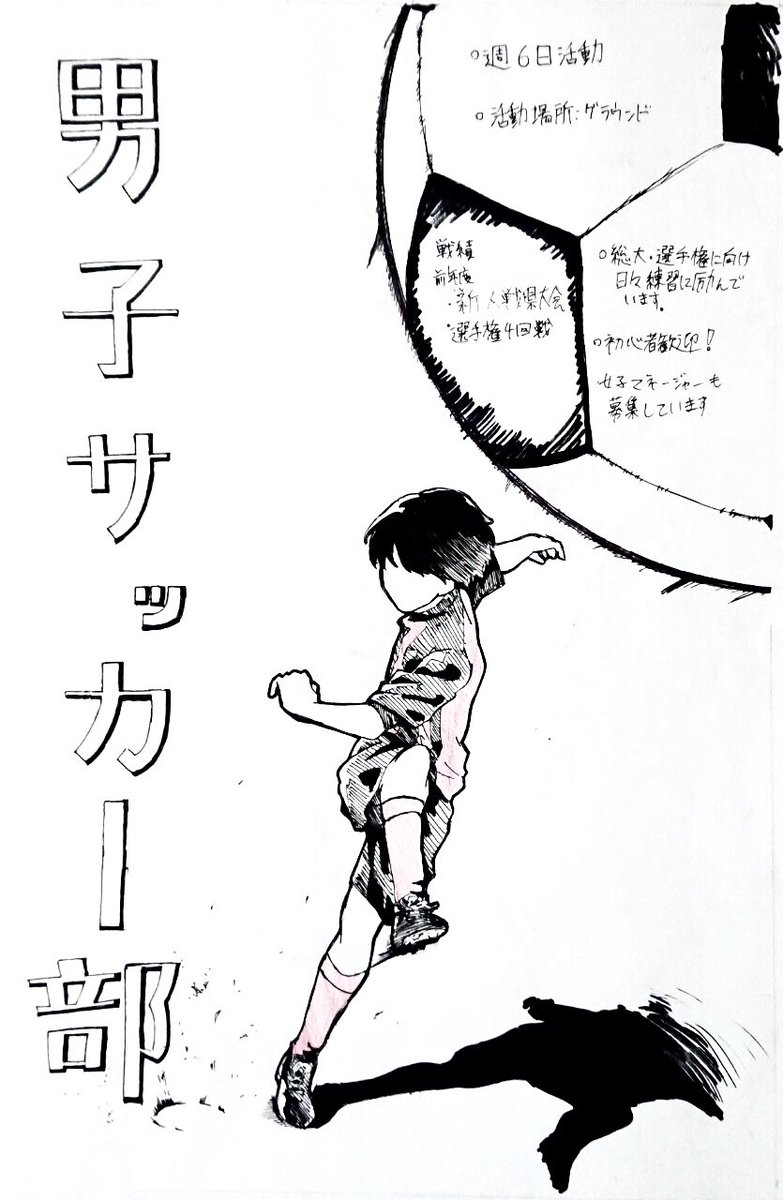 男子サッカー部
○週6日活動
○活動場所:グラウンド
戦績
前年度
・新人戦県大会
・選手権4回戦
○総太・選手権に向け
日々練習に励んで
います。
○初心者歓迎!
女子マネージャーも
募集しています